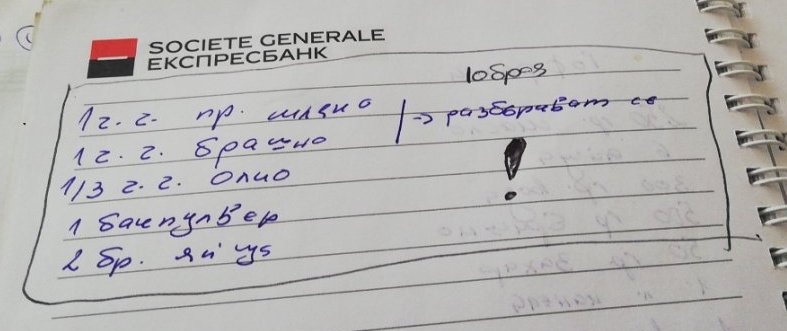 SOCIETE GENERALE
ЕКСПРЕСБАНК
1 ч. ч. пр. мляко
1 ч. ч. брашно
1/3 ч. ч. олио
1 бакпулвер
2 бр. яйца
→ разбъркват се
!